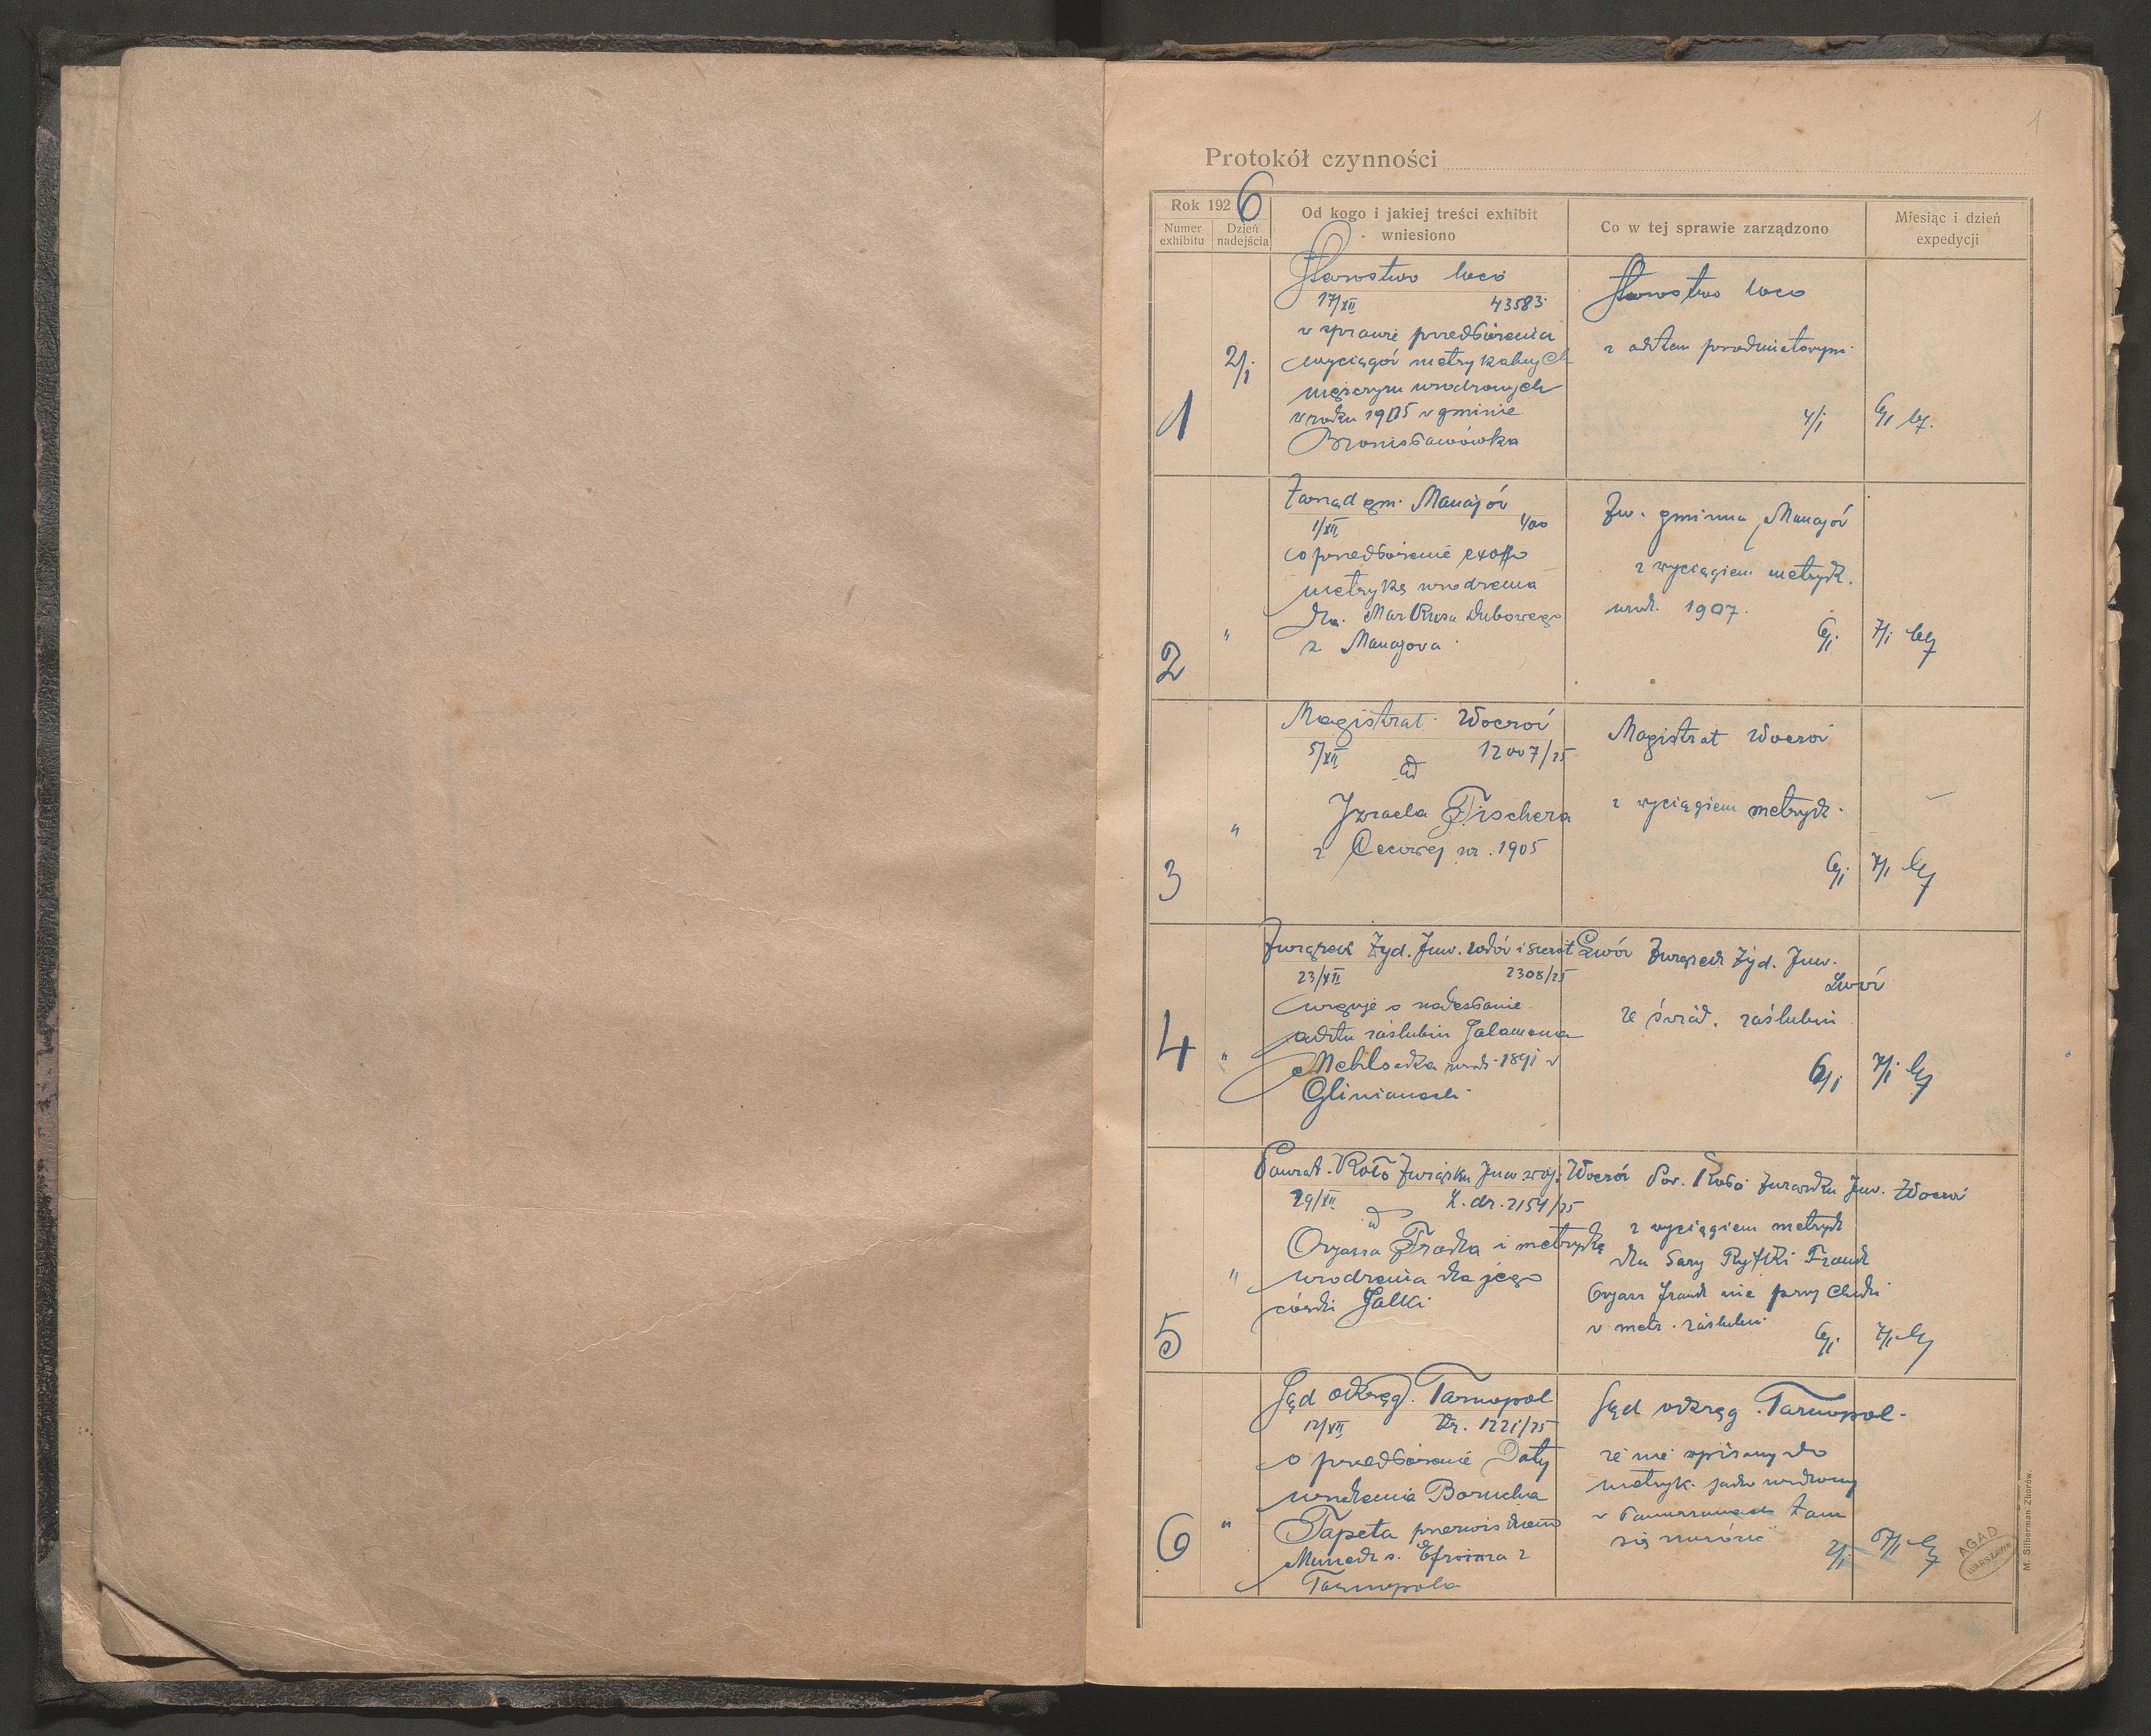 1
Protokół czynności
Rok 1926
Numer exhibitu
Dzień nadejścia
Od kogo i jakiej treści exhibit wniesiono
Co w tej sprawie zarządzono
Miesiąc i dzień expedycji
1
2/I
Starostwo loco
17/XII 43583
w sprawie przedłożenia
wyciągów metrykalnych
mężczyzn urodzonych
w roku 1905 w gminie
Bronisławówka
Starostwo loco
z aktem przedmiotowym
4/I
2
"
Zarząd gm. Manajów
1/XII 400
o przedłożenie exoffo
metrykę urodzenia
dla Markusa Dubowego
z Manajowa
Zw. gminna Manajów
z wyciągiem metryk.
urodz. 1907.
6/I
7/I
3
"
Magistrat Złoczów
5/XII 12007/25
ad
Izraela Fischera
z Cecowej ur. 1905
Magistrat Złoczów
z wyciągiem metryk.
6/I
7/I
4
"
Związek Żyd. Inw. wdów i sierot Lwów
23/XII 2308/25
wzywa o nadesłanie
aktu zaślubin Salamona
urodz. 1891 w
Glinianach
Związek Żyd. Inw.
Lwów
ze świad. zaślubin
6/I
7/I
5
"
Powiat. Koło Związku Inw. woj. Złoczów
29/XII L. dz. 2154/25
ad
i metrykę
urodzenia dla jego
córki Salki
Pow. Koło Związku Inw. Złoczów
z wyciągiem metryk
dla Sary Ryfki
nie przychodzi
w metr. zaślubin
6/I
7/I
6
"
Sąd okręg. Tarnopol
12/XII Vr. 1221/25
o przedłożenie Daty
urodzenia Borucha
Tapeta
Munedz s. Efroima z
Tarnopola
Sąd okręg. Tarnopol
że nie wpisany do
metryk. jako urodzony
w tam
się zwrócić
2/I
AGAD
WARSZAWA
M. Silberman Zborów.